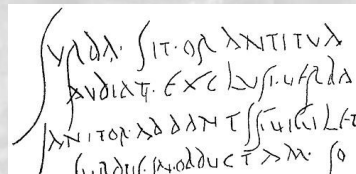 SURDA·SIT·ORANTI TUA
AUDIAT·EXCLUSI·UERBA
IANITOR·AD DANTIS UIGILET
SURDUS·IN·OBDUCTAM·SO